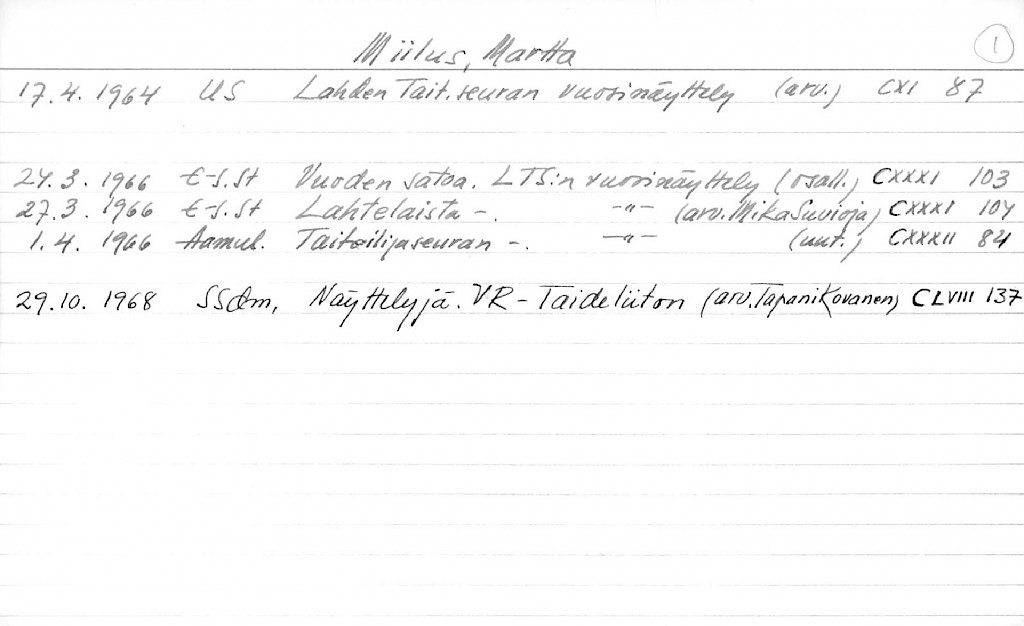 Miilus, Martta 1
17.4. 1964 US Lahden Tait.seuran vuosinäyttely (arv.) CXI 87
24.3. 1966 E-S.St Vuoden satoa. LTS:n vuosinäyttely (osall.) CXXXI 103
27.3. 1966 E-S.St Lahtelaista -. -"- (arv. Mika Suvioja) CXXXI 104
1.4. 1966 Aamul. Taiteilijaseuran -. -"- (uut.) CXXXII 84
29.10. 1968 SSdm, Näyttelyjä. VR-Taideliiton (arv. Tapani Kovanen) CLVIII 137